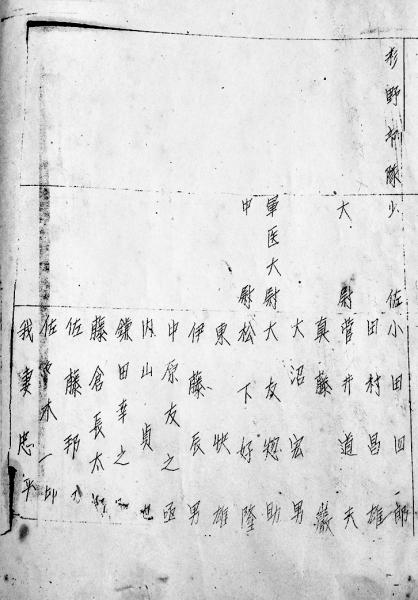 杉野部隊 少佐 小田四郎
田村昌雄
大尉 菅井道夫
真藤巌
大沼宏男
軍医大尉 大友惣助
中尉 松下好隆
東快雄
伊藤辰男
中原友之函
内山貞
鎌田幸之
藤倉長太
佐藤邦
佐々木一郎
我妻忠平